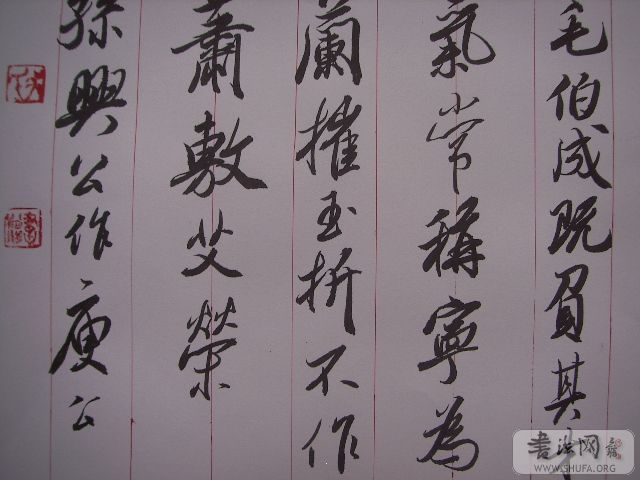 毛伯成既負其才
氣常稱寧為
蘭摧玉折不作
蕭敷艾榮
孫興公作庾公
書法网
WWW.SHUFA.ORG